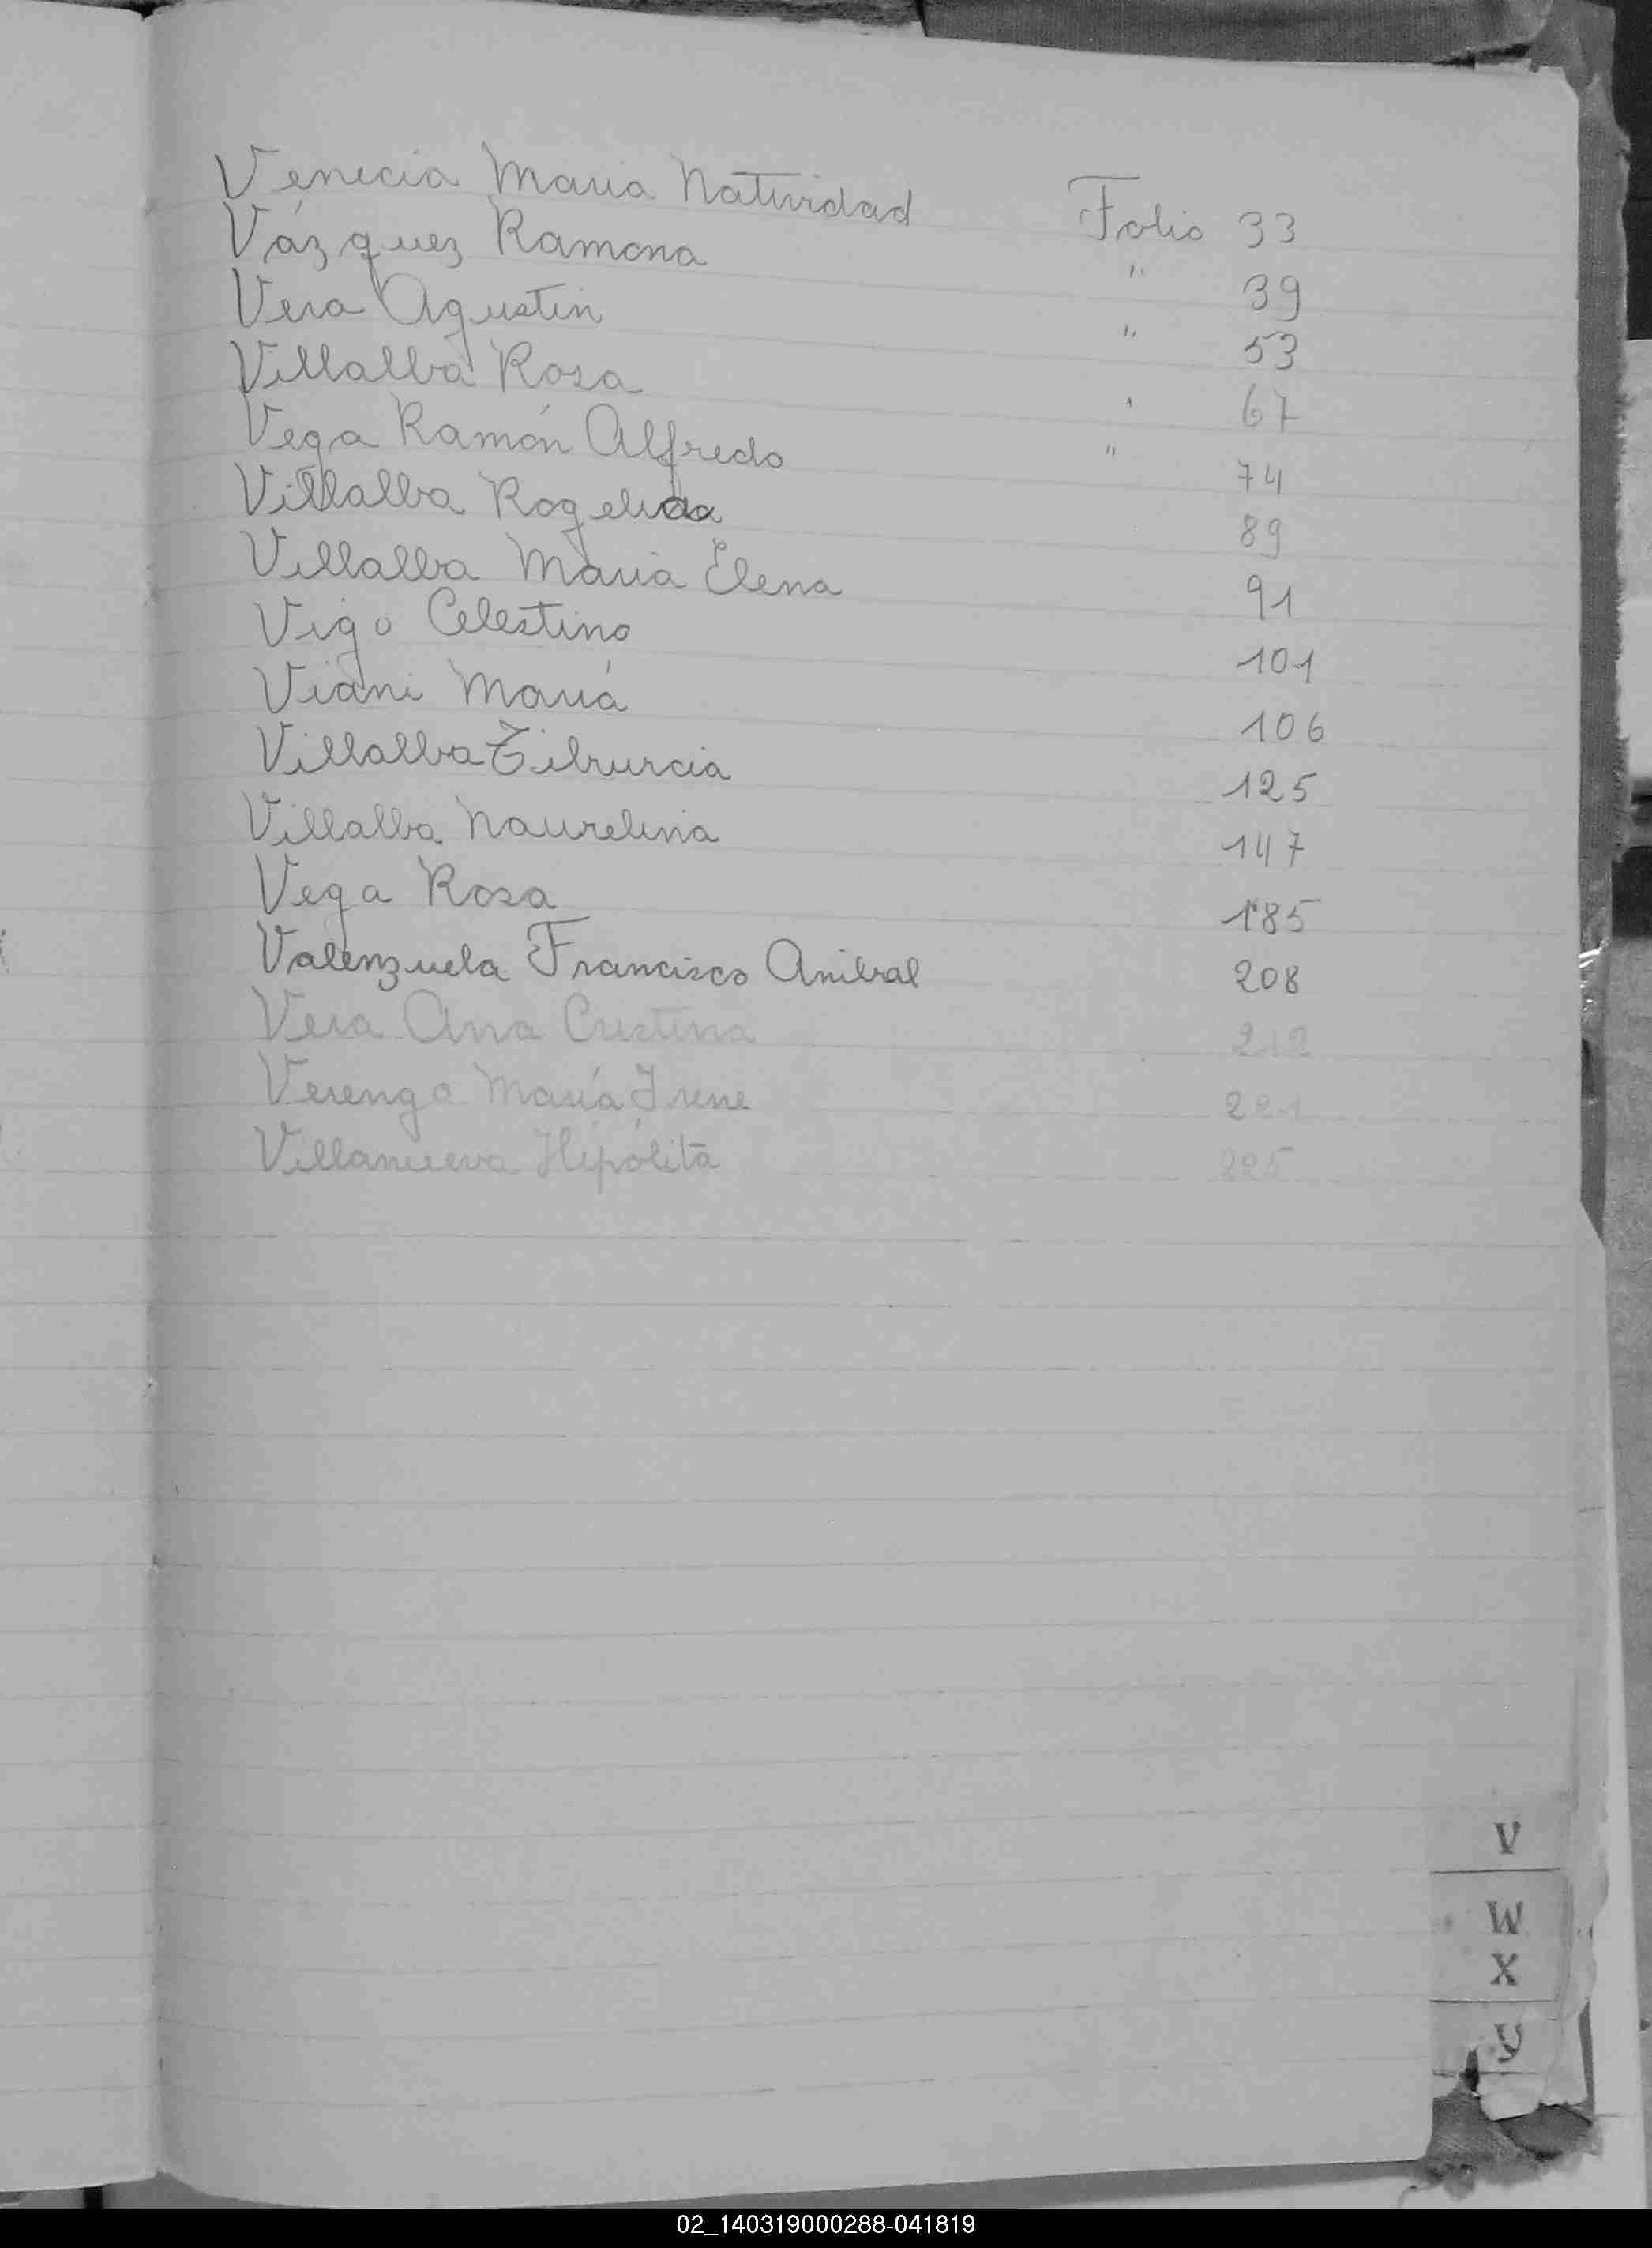 Venecia Maria Natividad Folio 33
Vázquez Ramona " 39
Vera Agustin " 53
Villalba Rosa " 67
Vega Ramón Alfredo " 74
Villalba Rogelia 89
Villalba Maria Elena 91
Vigo Celestino 101
Viani María 106
Villalba Tiburcia 125
Villalba Naurelina 147
Vega Rosa 185
Valenzuela Francisco Anibal 208
Vera Ana Cristina 212
Verenga María Irene 221
Villanueva Hipólita 225
V
W
X
Y
02_140319000288-041819